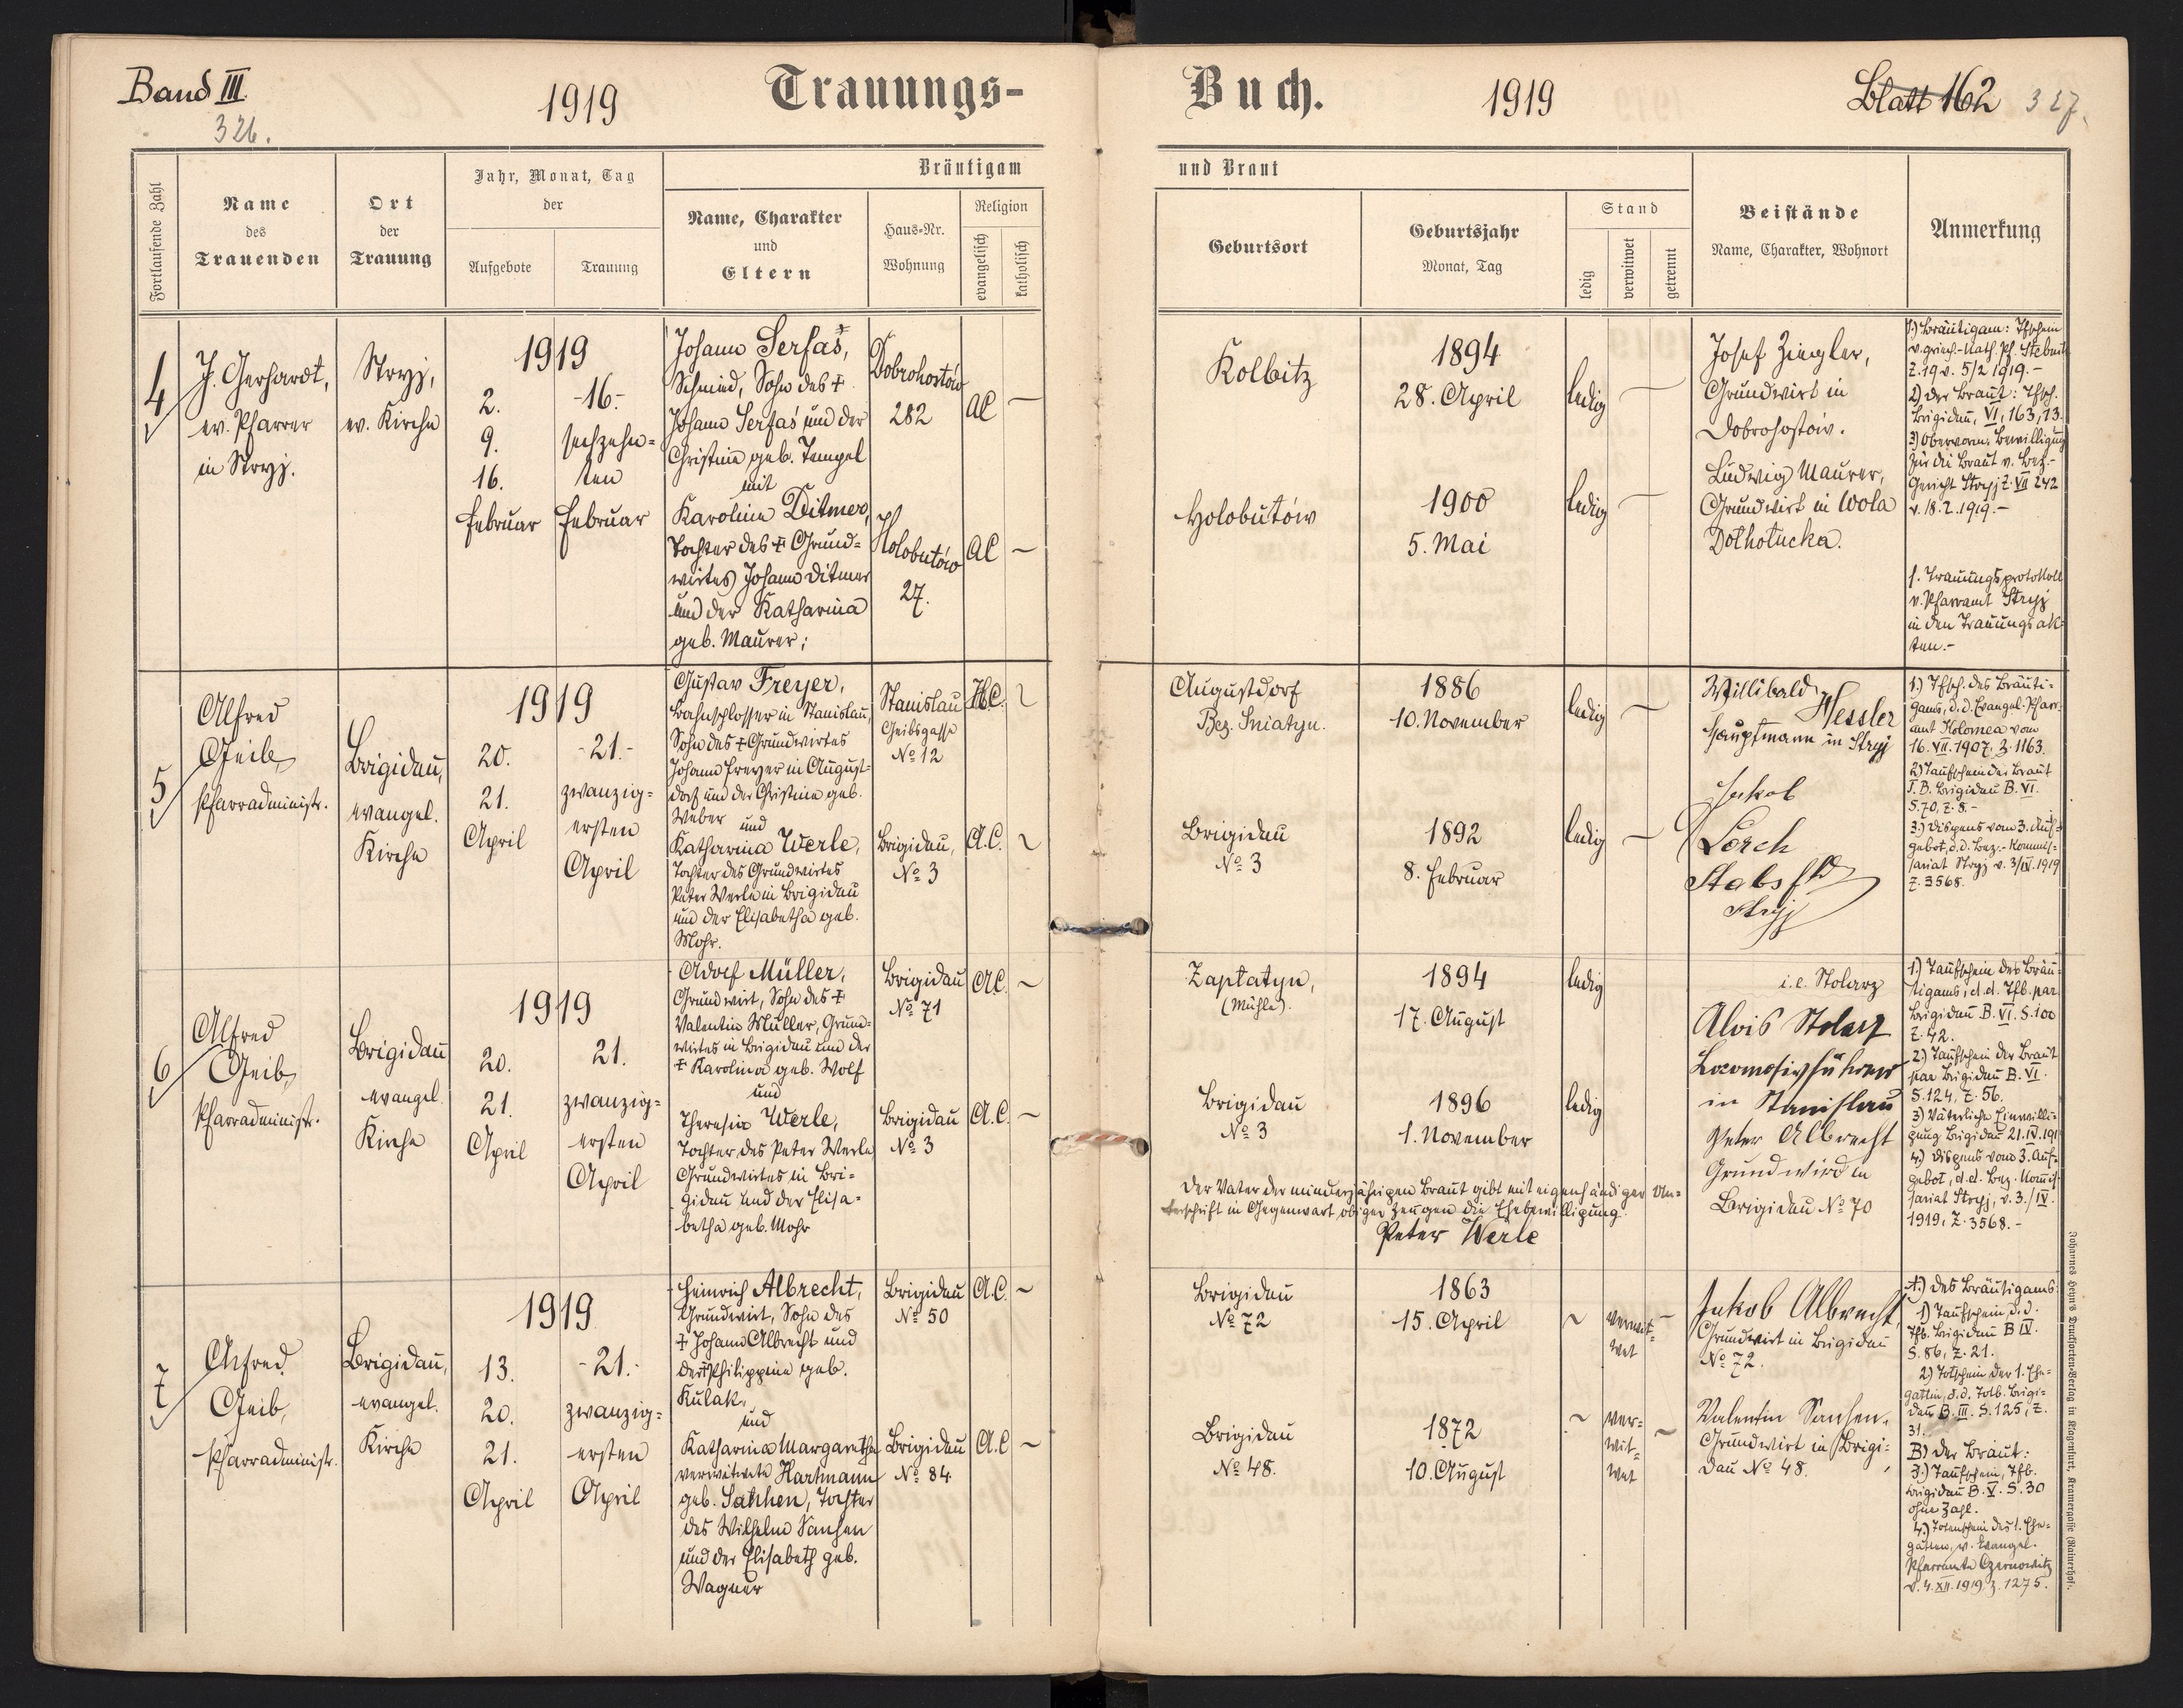 Band III.
326.
1919
Trauungs-
Buch.
1919
Blatt 162 327.
Fortlaufende Zahl
Name
des
Trauenden
Ort
der
Trauung
Jahr, Monat, Tag
der
Aufgebote
Trauung
Bräutigam
Name, Charakter
und
Eltern
Haus-Nr.
Wohnung
Religion
evangelisch
katholisch
und Braut
Geburtsort
Geburtsjahr
Monat, Tag
Stand
ledig
verwitwet
getrennt
Beistände
Name, Charakter, Wohnort
Anmerkung
4
J. Gerhardt,
ev. Pfarrer
in Stryj.
Stryj,
ev. Kirche
1919
2.
9.
16.
Februar
-16.-
sechzehn=
ten
Februar
Johann Serfas,
Schmied, Sohn des +
Johann Serfas und der
Christine geb. Tempel
mit
Karoline Ditmer,
Tochter des + Grund=
wirtes Johann Ditmer
und der Katharina
geb. Maurer;
Dobrohostów
282
AC
Holobutów
27.
AC
Kolbitz
1894
28. April
ledig
Holobutów
1900
5. Mai
ledig
Josef Ziegler,
Grundwirt in
Dobrohostów.
Ludwig Maurer,
Grundwirt in Wola
Dolholucka.
1.) Bräutigam: Tfschein
v. griech.-kath. Pf. Stebnik
Z. 19 v. 5/2 1919.-
2) der Braut: Tfsch.
Brigidau, VI, 163, 13.
3) Obervorm. Bewilligung
für die Braut v. Bez.-
Gericht Stryj Z. VII 242
v. 18.2.1919.-
1. Trauungsprotokoll
v. Pfarramt Stryj
in den Trauungsak=
ten.-
5
Alfred
Geib,
Pfarradministr.
Brigidau,
evangel.
Kirche
1919
20.
21.
April
-21.-
zwanzig=
ersten
April
Gustav Freyer,
Bahnschlosser in Stanislau,
Sohn des + Grundwirtes
Johann Freyer in August=
dorf und der Christine geb.
Weber und
Katharina Werle,
Tochter des Grundwirtes
Peter Werle in Brigidau
und der Elisabetha geb.
Mohr.
Stanislau
Geibgasse
No 12
H.C.
Brigidau,
No 3
A.C.
Augustdorf
Bez. Sniatyn.
1886
10. November
ledig
Brigidau
No 3
1892
8. Februar
ledig
Willibald
Hessler
Hauptmann in Stryj
Jakob
Lorch
Stryj
1.) Tfsch. des Bräuti=
gams, d.d. Evangel. Pfarr=
amt Kolomea vom
16. VII. 1907. Z. 1163.
2) Taufschein der Braut
T.B. Brigidau B. VI.
S. 70, Z. 8.-
3.) Dispens vom 3. Auf=
gebot, d.d. Bez.-Kommis=
sariat Stryj v. 3/IV. 1919
Z. 3568.
6
Alfred
Geib,
Pfarradministr.
Brigidau
evangel.
Kirche
1919
20.
21.
April
21.
zwanzig=
ersten
April
Adolf Müller,
Grundwirt, Sohn des +
Valentin Müller, Grund=
wirtes in Brigidau und der
+ Karolina geb. Wolf
und
Theresia Werle,
Tochter des Peter Werle
Grundwirtes in Bri=
gidau und der Elisa=
betha geb. Mohr
Brigidau
No 71
A.C.
Brigidau
No 3
A.C.
Zaptatyn,
(Mühle).
1894
17. August
ledig
Brigidau
No 3
1896
1. November
ledig
Der Vater der minderjährigen Braut gibt mit eigenhändiger Un=
terschrift in Gegenwart obiger Zeugen die Ehebewilligung.
Peter Werle
i.e. Stolarz
Alois Stolarz
Locomotivführer
in Stanislau
Peter Albrecht
Grundwird in
Brigidau No 70
1.) Taufschein des Bräu=
tigams, d.d. Tfb. par
Brigidau B. VI. S. 100
Z. 42.
2.) Taufschein der Braut
par Brigidau B. VI.
S. 124, Z. 56.
3) Väterliche Einwilli=
gung Brigidau 21.IV.191
4.) Dispens vom 3. Auf=
gebot, d.d. Bez. Kommis=
sariat Stryj, v. 3./IV.
1919, Z. 3568.-
7
Alfred
Geib,
Pfarradministr.
Brigidau,
evangel.
Kirche
1919
13.
20.
21.
April
-21.-
zwanzig=
ersten
April
Heinrich Albrecht,
Grundwirt, Sohn des
+ Johann Albrecht und
der + Philippine geb.
Kulak,
und
Katharina Margaretha
verwitwete Hartmann
geb. Sanhen, Tochter
des Wilhelm Sanhen
und der Elisabeth geb.
Wagner
Brigidau
No 50
A.C.
Brigidau
No 84
A.C
Brigidau
No 72
1863
15. April
verwit=
wet
Brigidau
No 48.
1872
10. August
ver=
wit=
wet
Jakob Albrecht,
Grundwirt in Brigidau
No 72.
Valentin Sanhen,
Grundwirt in Brigi=
dau No 48.
A.) des Bräutigams:
1) Taufschein, d.d.
Tfb. Brigidau B IV.
S. 86, Z. 21.
2) Totschein der 1. Ehe=
gattin, d.d. Totb. Brigi=
dau B. III. S. 125, Z.
31.
B) der Braut:
3.) Taufschein, Tfb.
Brigidau B. V. S. 30
ohne Zahl.
4.) Totenschein des 1. Ehe=
gatten, v. Evangel.
Pfarramte Czernowitz
v. 4. XII. 1919, Z. 1275.
Johannes Heyn's Drucksorten-Verlag in Klagenfurt, Kramergasse (Rainerhof).